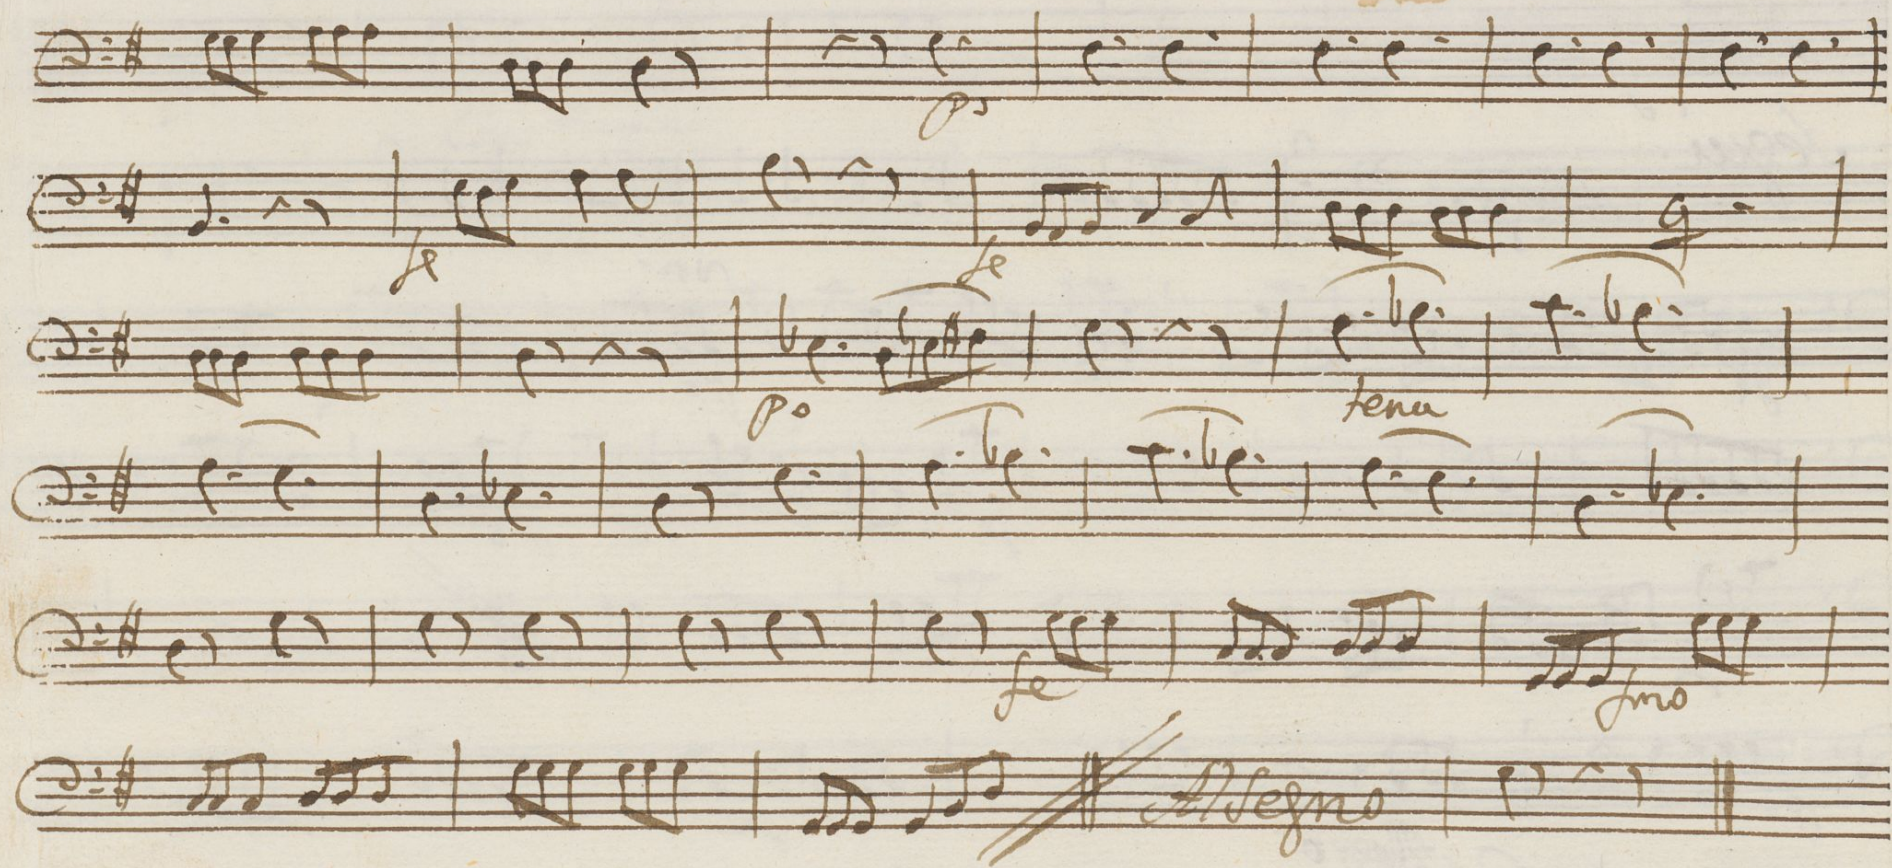 po
fe fe
po tenu
fe fmo
Al Segno